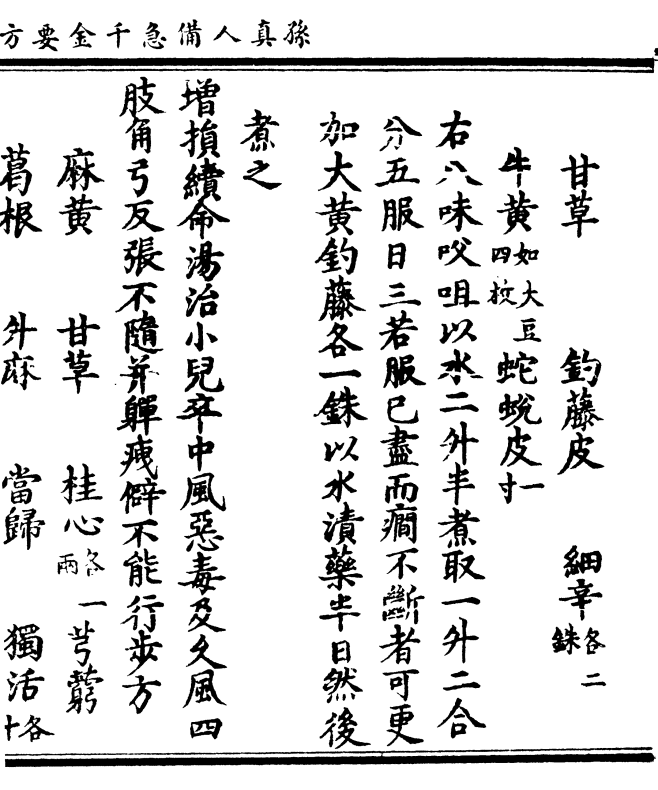 孫真人備急千金要方
甘草 釣藤皮 細辛各二銖
牛黃如大豆四枚 蛇蛻皮一寸
右八味㕮咀以水二升半煮取一升二合
分五服日三若服已盡而癇不斷者可更
加大黃釣藤各一銖以水漬藥半日然後
煮之
增損續命湯治小兒卒中風惡毒及久風四
肢角弓反張不隨并嚲痩僻不能行步方
麻黃 甘草 桂心各一兩 芎藭
葛根 升麻 當歸 獨活各十